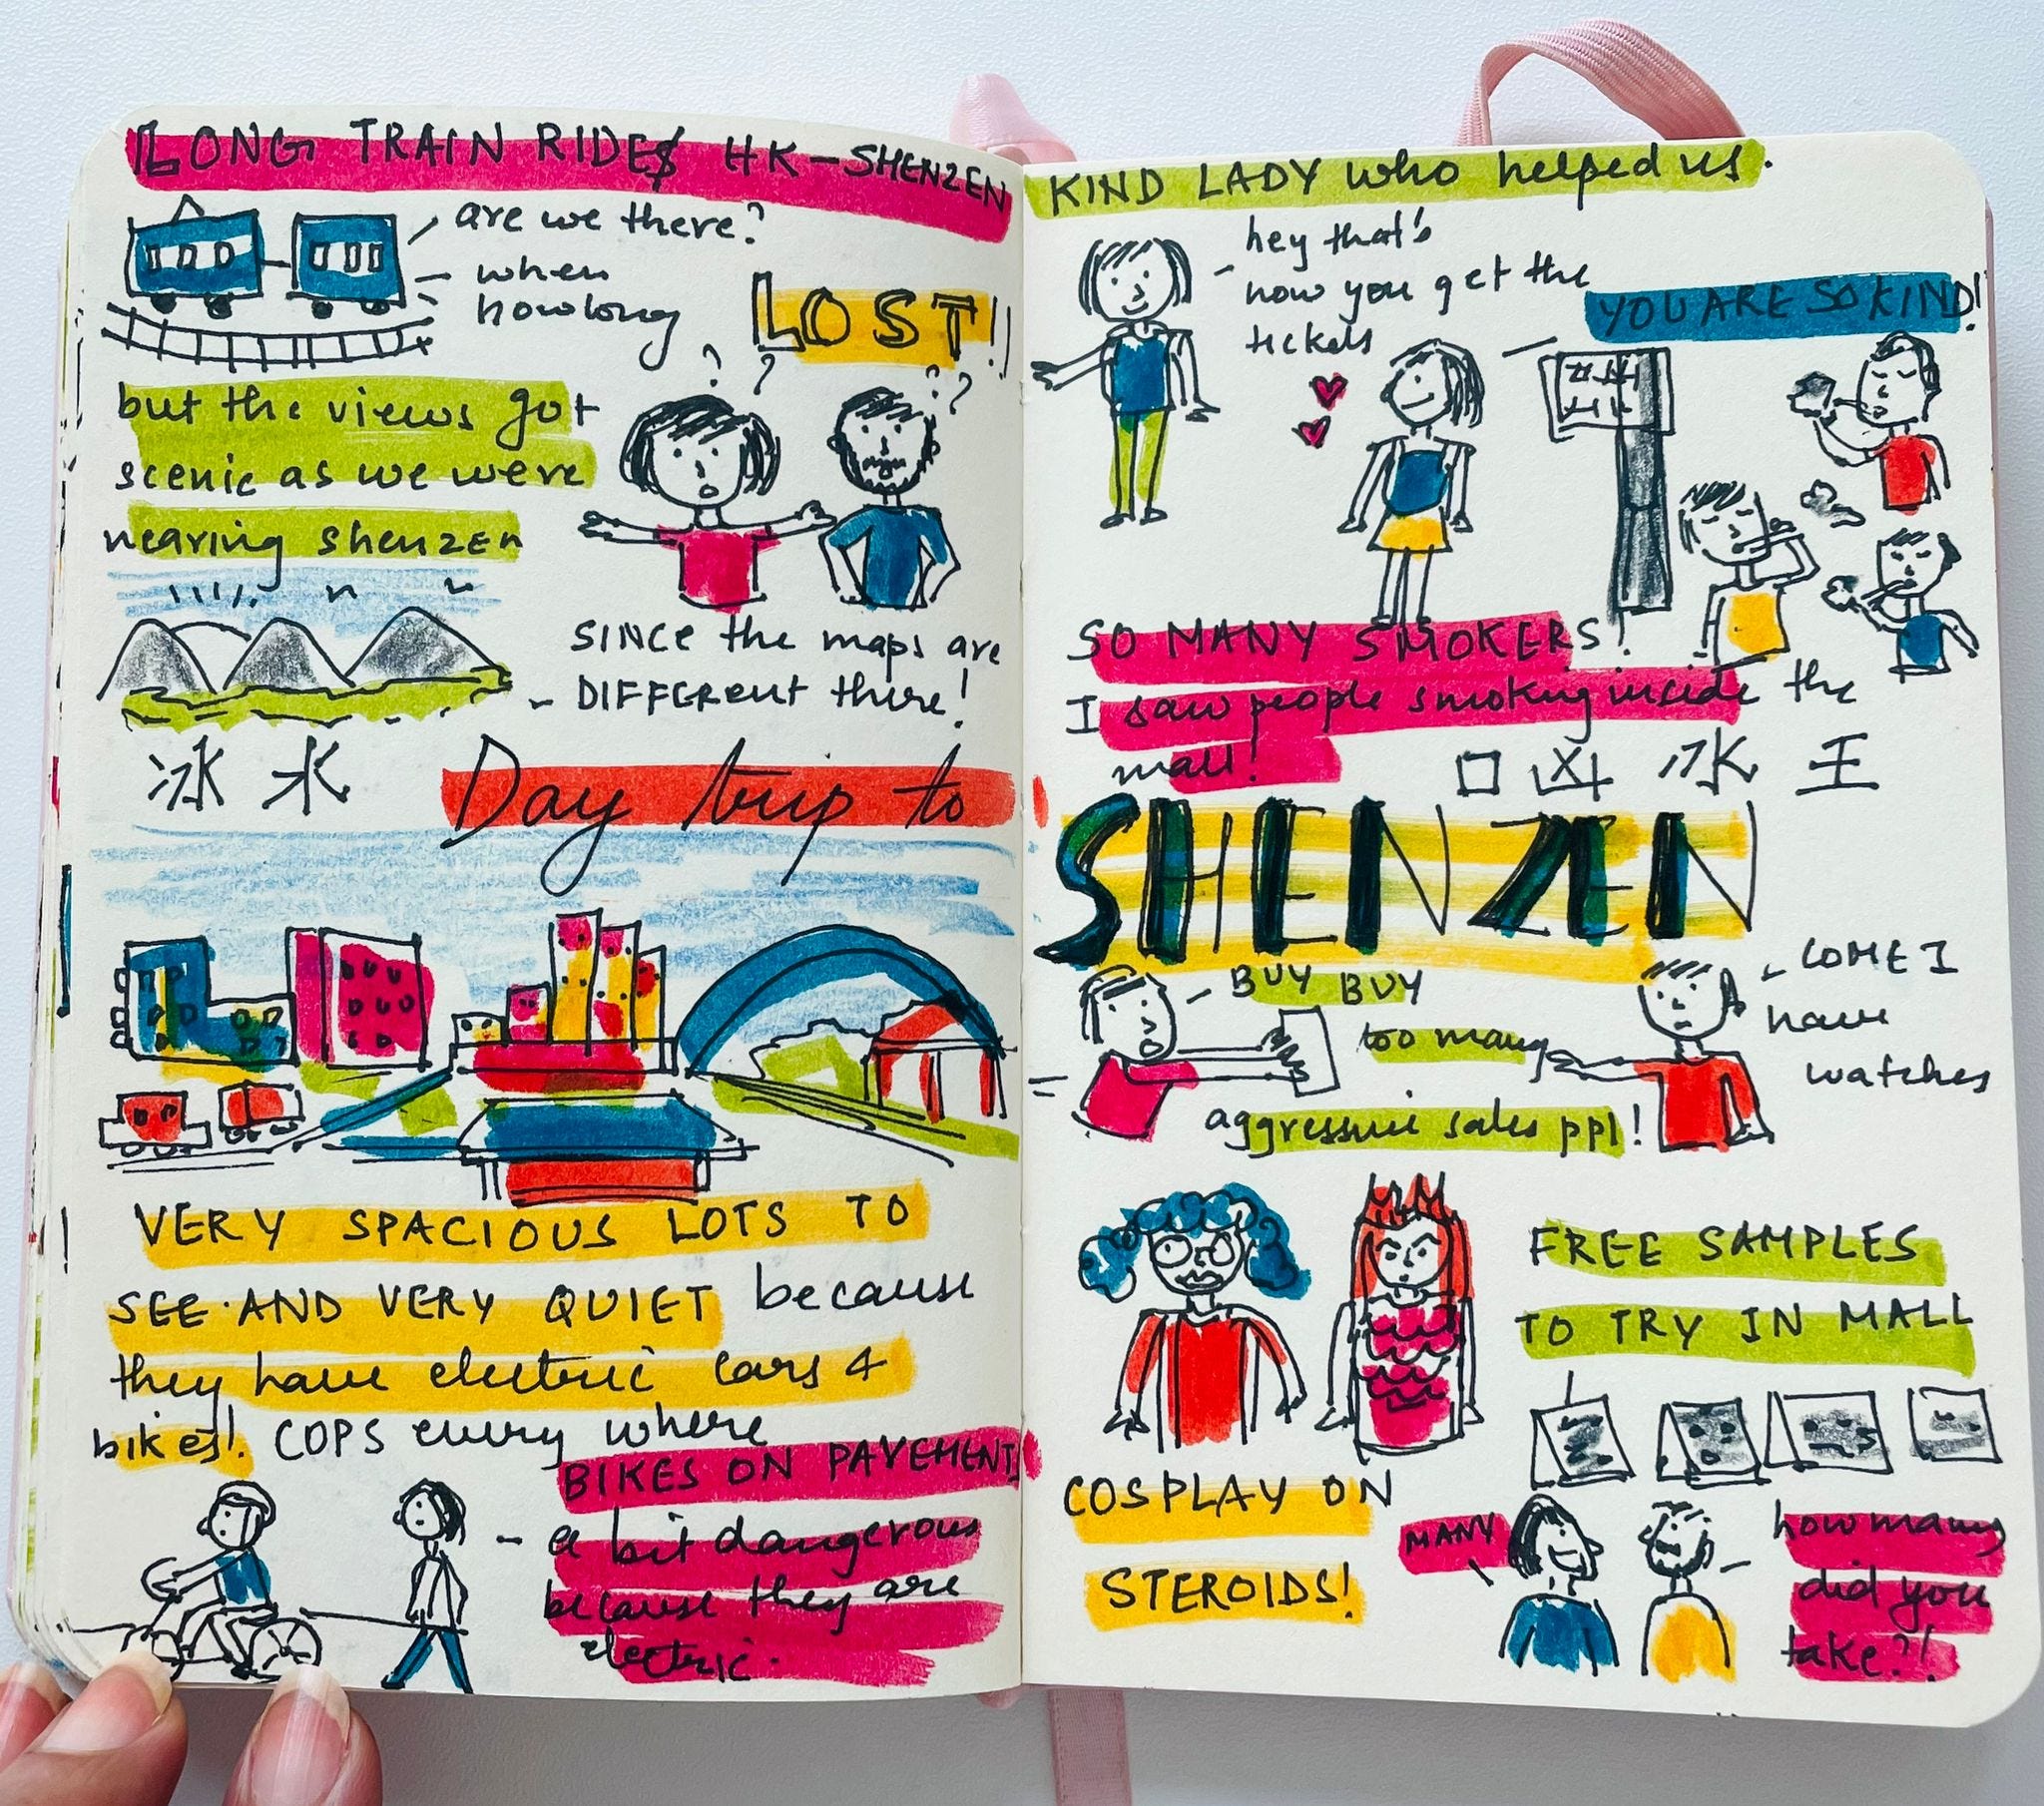 LONG TRAIN RIDES HK-SHENZEN
are we there?
when
howlong
LOST!!
? ? ??
but the views got
scenic as we were
nearing shenzen
SINCE the maps are
- DIFFERENT there!
冰 水
Day trip to
VERY SPACIOUS LOTS TO
SEE. AND VERY QUIET because
they have electric cars &
bikes! COPS every where
BIKES ON PAVEMENTS
- a bit dangerous
because they are
electric.
KIND LADY who helped us.
hey that's
how you get the
tickets
YOU ARE SO KIND!
SO MANY SMOKERS!
I saw people smoking inside the
mall!
口 凶 水 王
SHENZEN
BUY BUY
too many
aggressive sales ppl!
COME I
have
watches
FREE SAMPLES
TO TRY IN MALL
COSPLAY ON
STEROIDS!
MANY
how many
did you
take?!